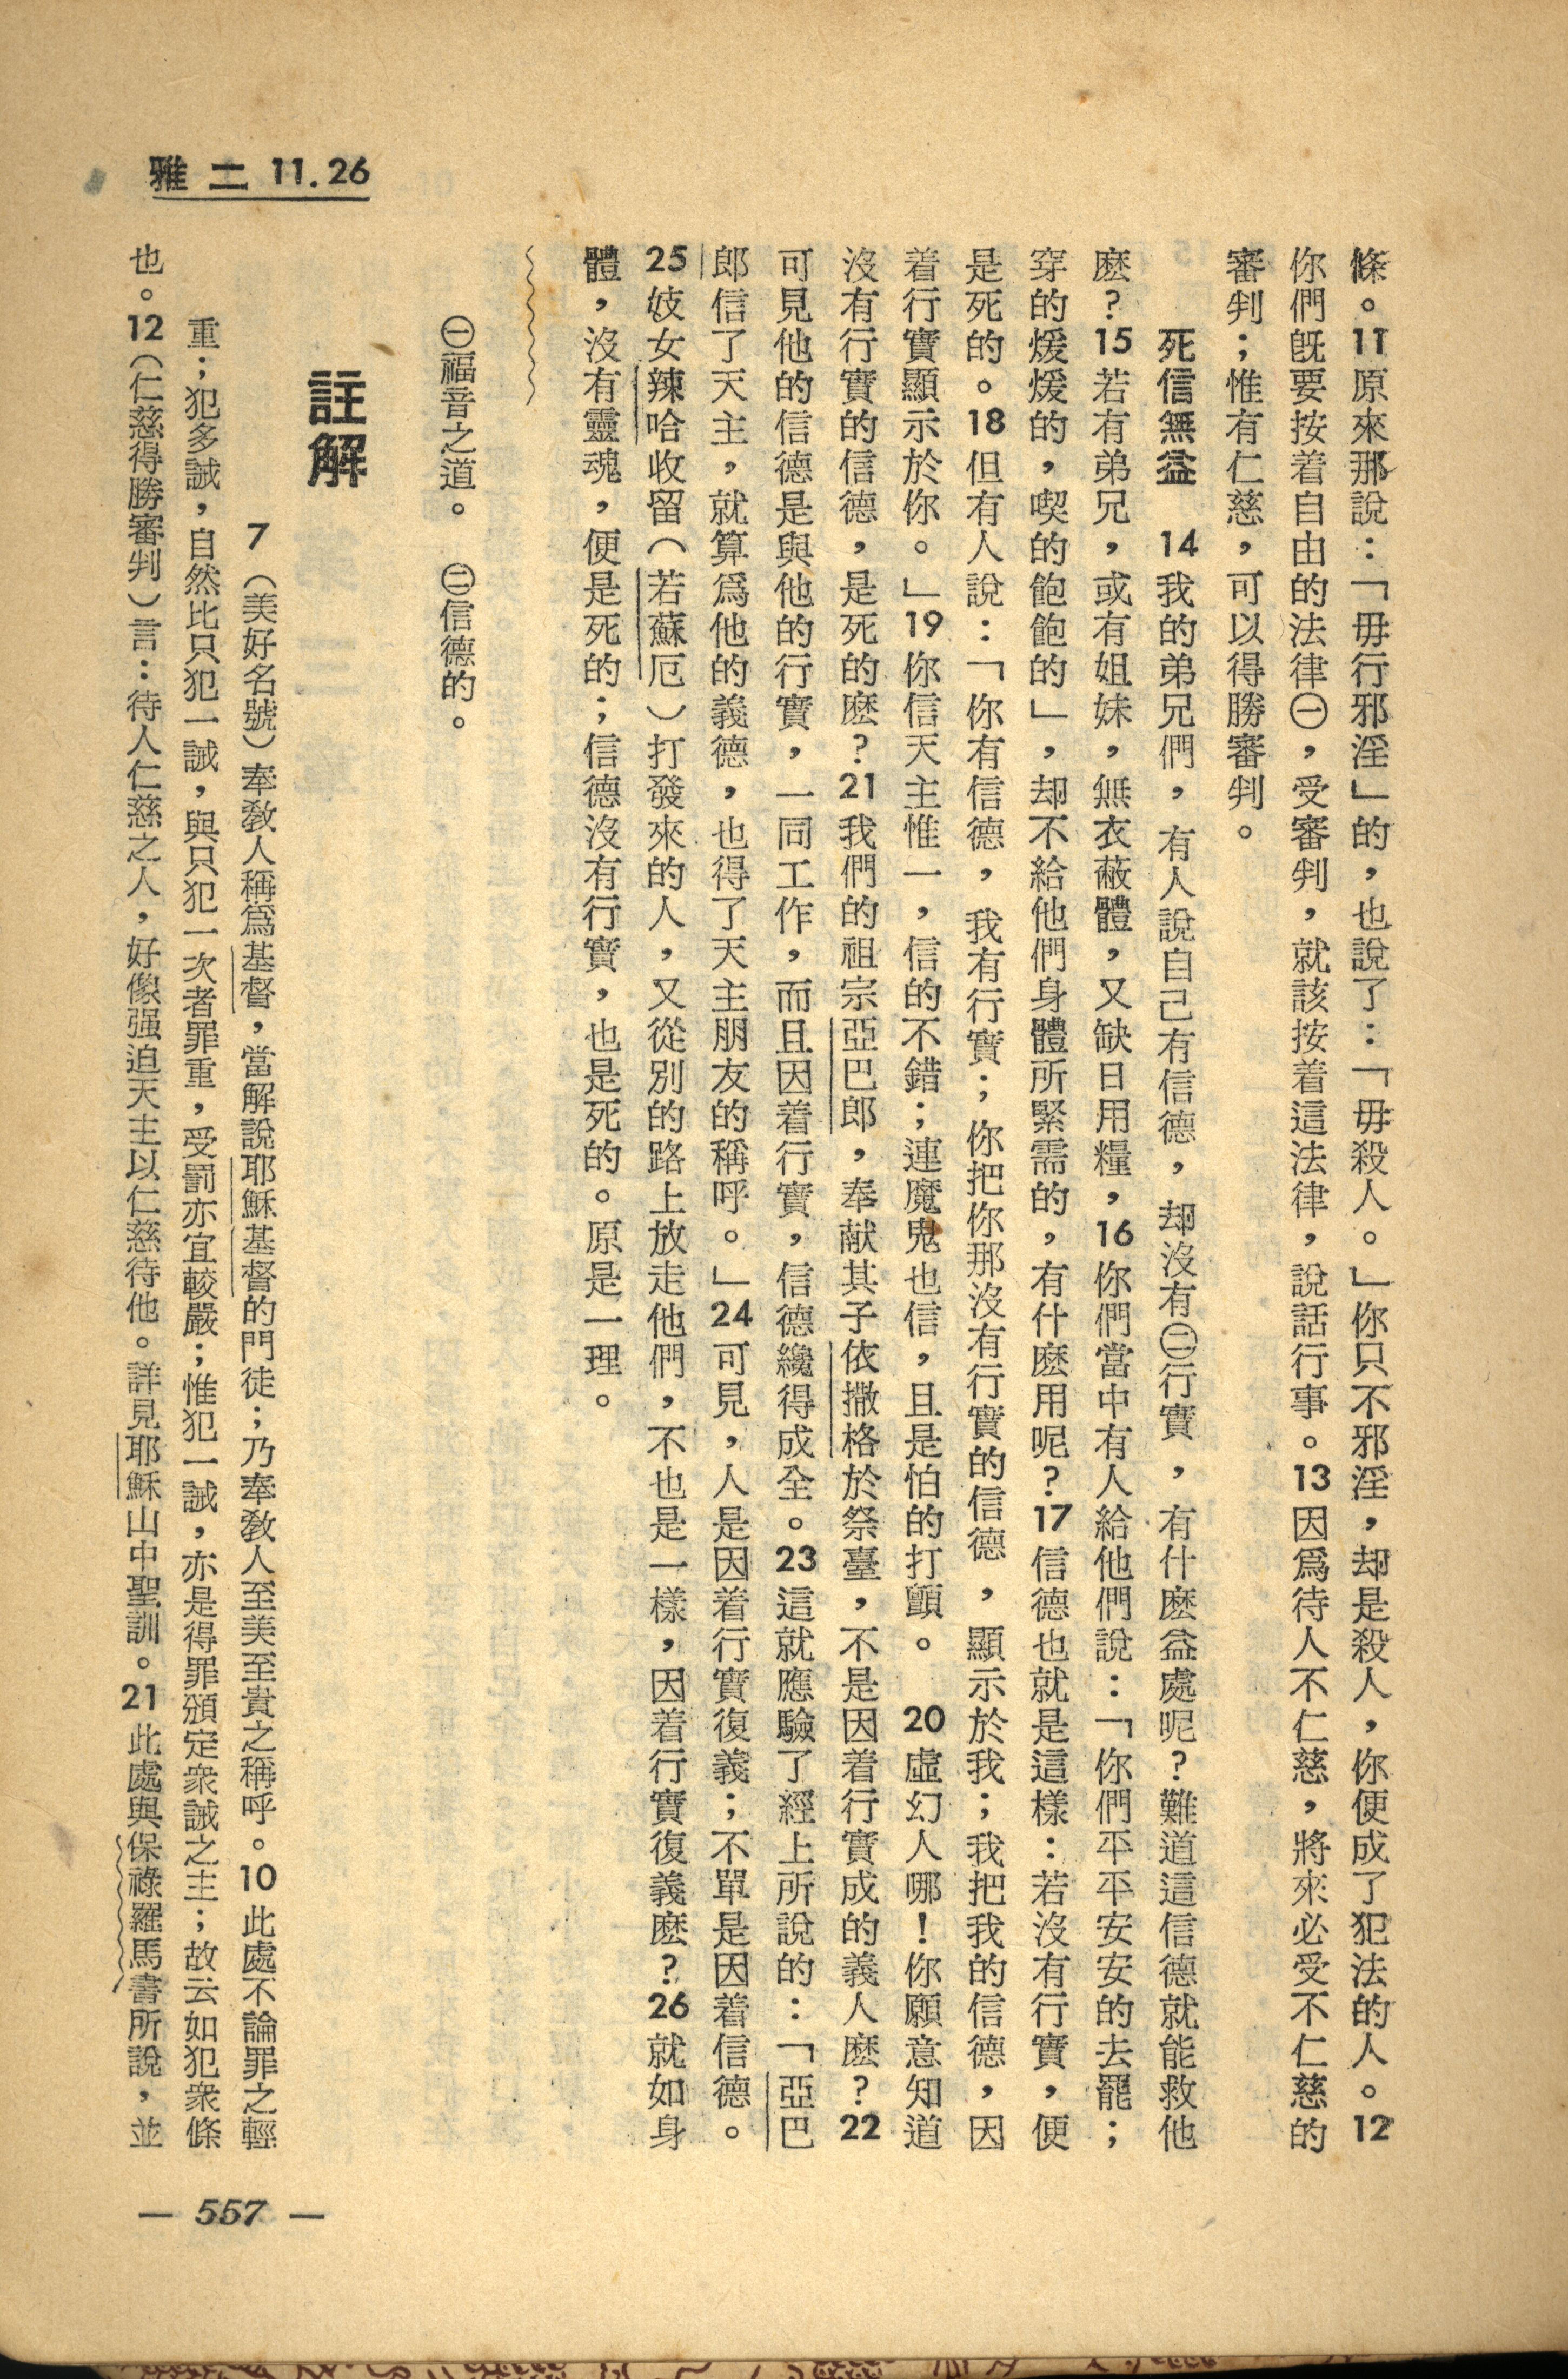 雅二 11.26
條。11原來那說：「毋行邪淫」的，也說了：「毋殺人。」你只不邪淫，却是殺人，你便成了犯法的人。12
你們旣要按着自由的法律㊀，受審判，就該按着這法律，說話行事。13因爲待人不仁慈，將來必受不仁慈的
審判；惟有仁慈，可以得勝審判。
死信無益　14我的弟兄們，有人說自己有信德，却沒有㊁行實，有什麽益處呢？難道這信德就能救他
麽？15若有弟兄，或有姐妹，無衣蔽體，又缺日用糧，16你們當中有人給他們說：「你們平平安安的去罷；
穿的煖煖的，喫的飽飽的」，却不給他們身體所緊需的，有什麽用呢？17信德也就是這樣：若沒有行實，便
是死的。18但有人說：「你有信德，我有行實；你把你那沒有行實的信德，顯示於我；我把我的信德，因
着行實顯示於你。」19你信天主惟一，信的不錯；連魔鬼也信，且是怕的打顫。　20虛幻人哪！你願意知道
沒有行實的信德，是死的麽？21我們的祖宗亞巴郎，奉献其子依撒格於祭臺，不是因着行實成的義人麽？22
可見他的信德是與他的行實，一同工作，而且因着行實，信德纔得成全。23這就應驗了經上所說的：「亞巴
郎信了天主，就算爲他的義德，也得了天主朋友的稱呼。」24可見，人是因着行實復義；不單是因着信德。
25妓女辣哈收留（若蘇厄）打發來的人，又從別的路上放走他們，不也是一樣，因着行實復義麽？26就如身
體，沒有靈魂，便是死的；信德沒有行實，也是死的。原是一理。
㊀福音之道。　㊁信德的。
註解
7（美好名號）奉敎人稱爲基督，當解說耶穌基督的門徒；乃奉敎人至美至貴之稱呼。10此處不論罪之輕
重；犯多誡，自然比只犯一誡，與只犯一次者罪重，受罰亦宜較嚴；惟犯一誡，亦是得罪頒定衆誡之主；故云如犯衆條
也。12（仁慈得勝審判）言：待人仁慈之人，好像强迫天主以仁慈待他。詳見耶穌山中聖訓。21此處與保祿羅馬書所說，並
— 557 —